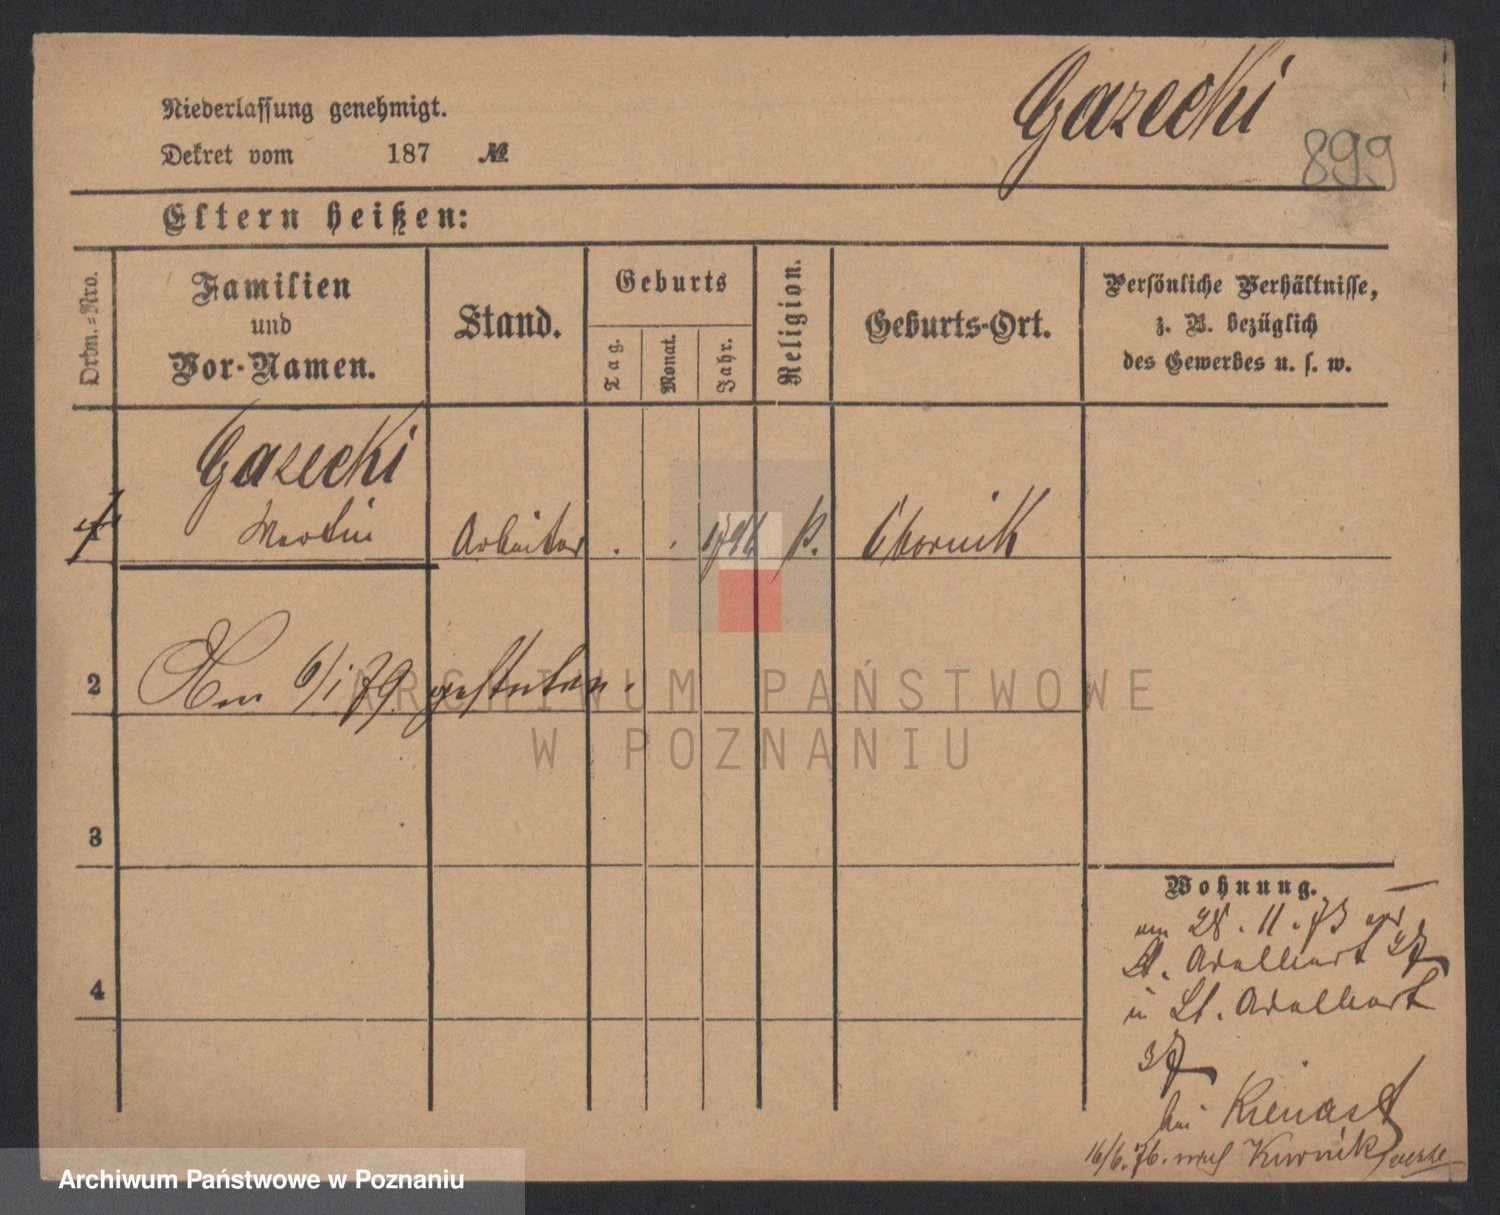 Gazecki
899
Niederlassung genehmigt.
Dekret vom 187 №
Eltern heißen:
Ordn.=Nro.
Familien
und
Vor-Namen.
Stand.
Geburts
Tag.
Monat.
Jahr.
Religion.
Geburts-Ort.
Persönliche Verhältnisse,
z. B. bezüglich
des Gewerbes u. s. w.
Gazecki
Martin Arbeiter . . 1796 k. Obornik
2 Am 6/1 79. gestorben.
3
4
Wohnung.
am 28. 11. 73
St. Adalbert 37
u St. Adalbert
37
bei Kienast
16/6. 76. nach Kurnik
ARCHIWUM PAŃSTWOWE
W POZNANIU
Archiwum Państwowe w Poznaniu